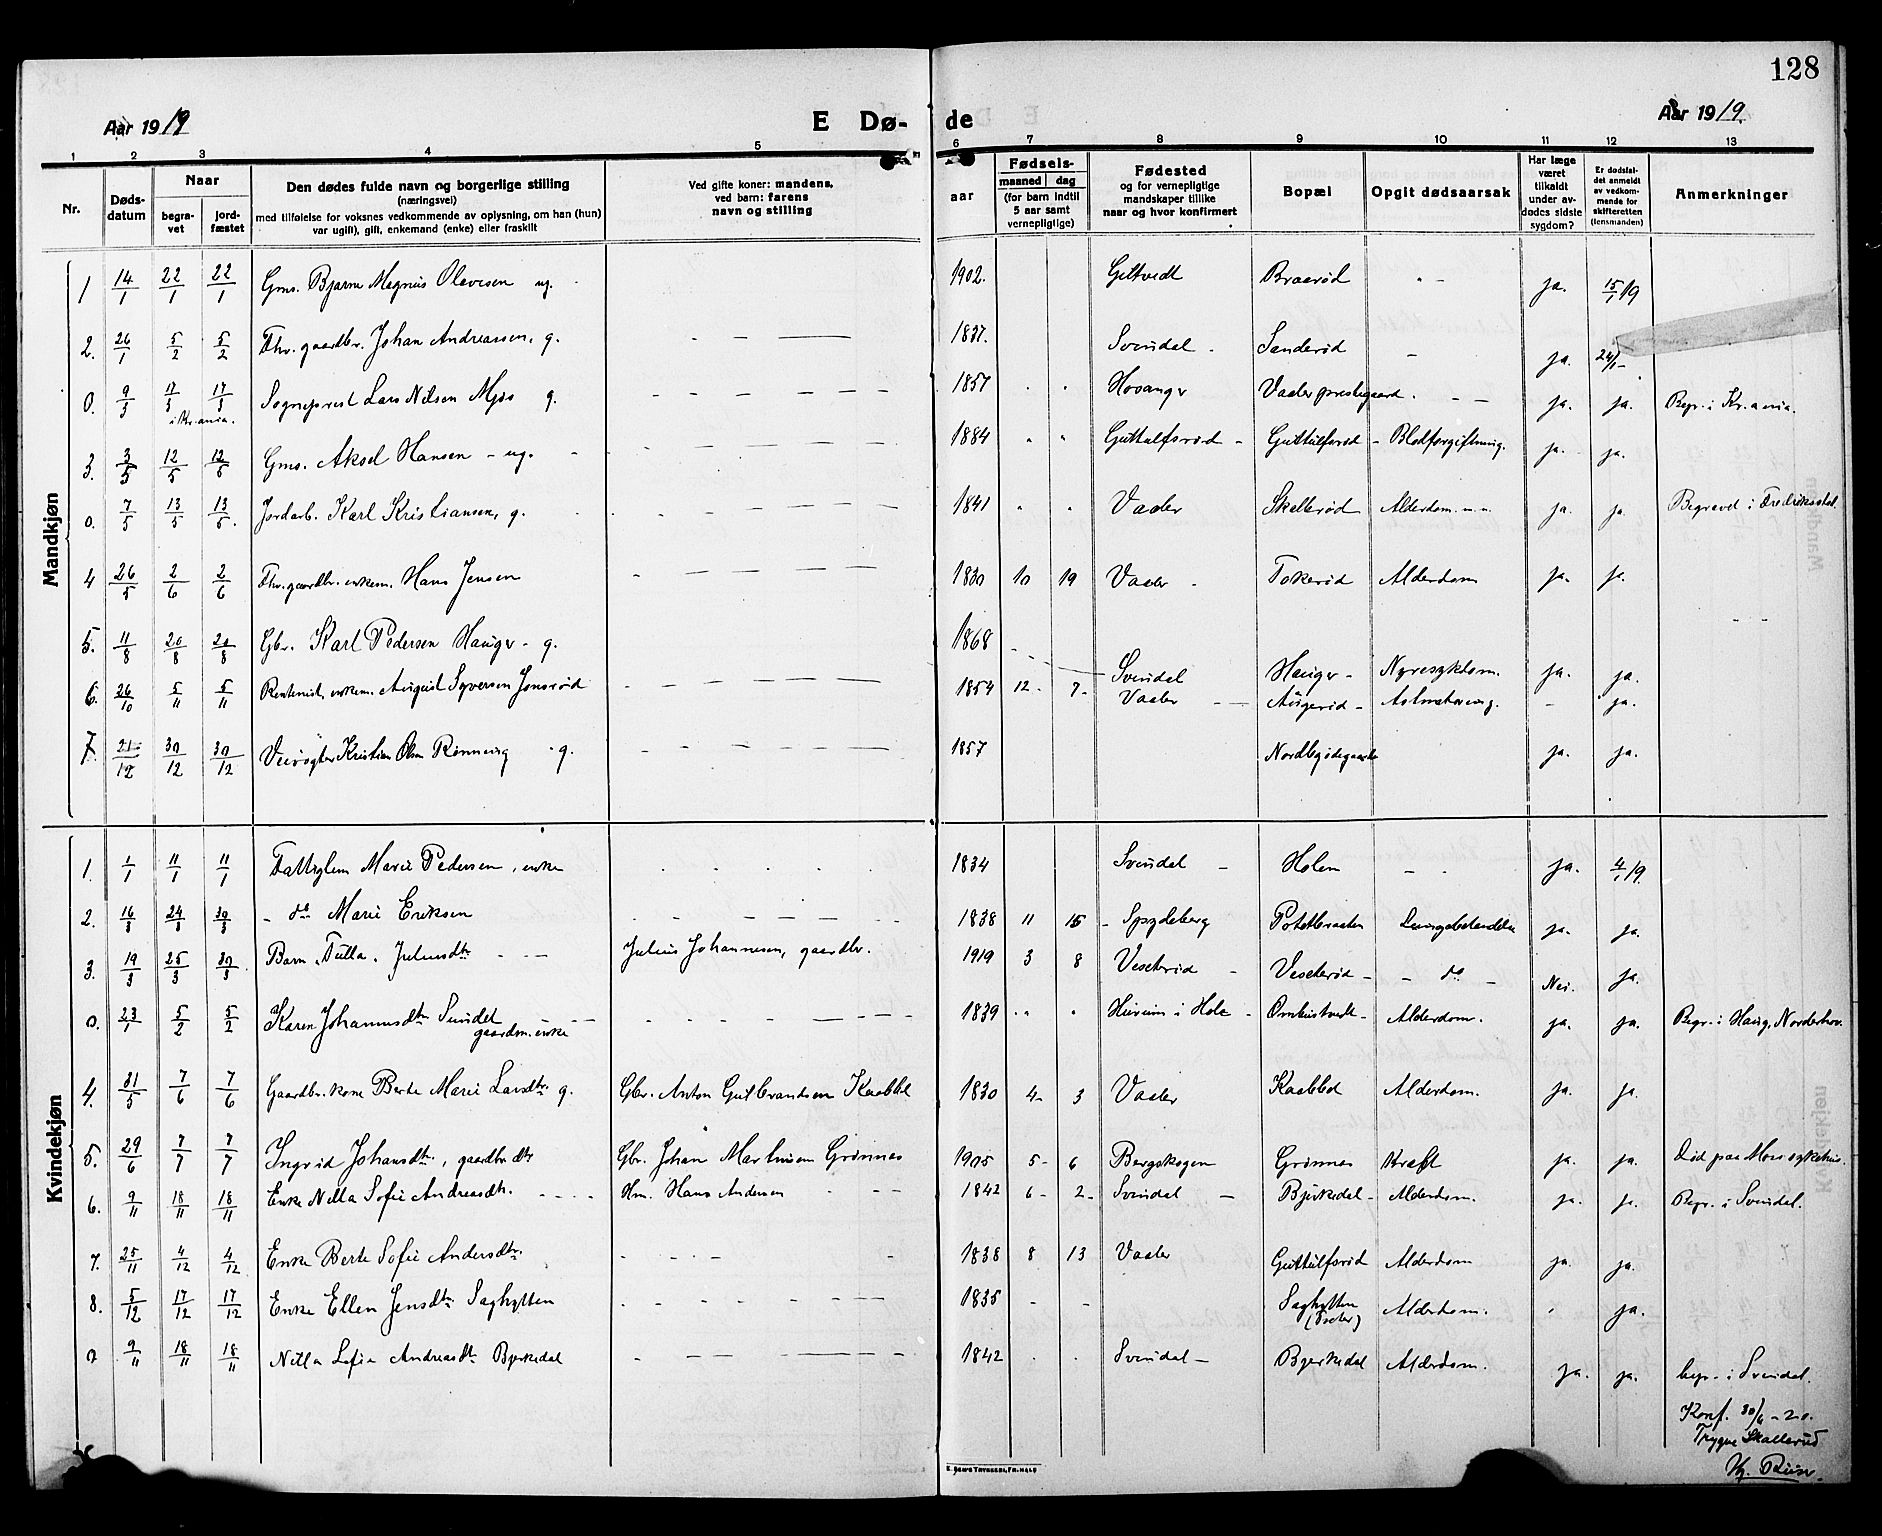 128
Aar 1919
E Dø-
de
Aar 1919.
1 2 3 4 5 6 7 8 9 10 11 12 13
Nr.
Døds-
datum
Naar
begra-
vet
jord-
fæstet
Den dødes fulde navn og borgerlige stilling
(næringsvei)
med tilføielse for voksnes vedkommende av oplysning, om han (hun)
var ugift, gift, enkemand (enke) eller fraskilt
Ved gifte koner: mandens,
ved barn: farens
navn og stilling
aar
Fødsels-
maaned dag
(for barn indtil
5 aar samt
vernepligtige)
Fødested
og for vernepligtige
mandskaper tillike
naar og hvor konfirmert
Bopæl
Opgit dødsaarsak
Har læge
været
tilkaldt
under av-
dødes sidste
sygdom?
Er dødsfal-
det anmeldt
av vedkom-
mende for
skifteretten
(lensmanden)
Anmerkninger
Mandkjøn
1 14/1 22/1 22/1 Gms. Bjarne Magnus Olavesen ug. 1902. Guttvedt Braarød ja. 15/1 19
2. 26/1 5/2 5/2 Fhv. gaardbr. Johan Andreassen, g. 1837. Svindal Sanderød ja.
0. 9/3 17/3 17/3 Sogneprest Lars Nilsen Mjøs g. 1857 Hosanger Vaaler prestegaard. ja. ja. Begr. i Kr.ania.
i Kr.ania.
3. 3/5 12/5 12/5 Gms. Aksel Hansen - ug. 1884 Guttulfsrød Guttulfsrød Blodforgiftning. ja. ja.
0. 7/5 13/5 13/5. Jordarb. Karl Kristiansen, g. 1841 Vaaler Skallerød Alderdom. ja. ja. Begravet i Fredriksstad.
4 26/5 2/6 2/6 Fhv. gaardbr. enkem. Hans Jensen 1830 10 19 Vaaler Tokerød Alderdom ja. ja.
5. 11/8 20/8 20/8 Gbr. Karl Pedersen Hauger - g. 1868 Svindal Hauger - Nyresykdom. ja. ja.
6. 26/10 5/11 5/11 Rentenist, enkem. August Syversen Jonsrød 1854 12- 7- Vaaler Augerød - ja.
7. 21/12 30/12 30/12 Veivogter Kristian Olsen Rønning g. 1857 Nordbygdegaarden ja. ja.
Kvindekjøn
1. 1/1 11/1 11/1 Fattiglem Marie Pedersen, enke 1834 Svindal Holen ja. 4/1 19.
2. 16/3 24/3 30/3 - do Marie Eriksen 1838 11 15 Spydeberg Potetbraaten Lungebetændelse ja. ja.
3. 19/3 25/3 30/3 Barn Tulla. Juliusdtr Julius Johannesen, gaardbr. 1919 3 8 Veseterød Veseterød - do - Nei. ja.
0. 23/1 5/2 5/2 Karen Johannesdtr Sundet 1839 i Hole Ombustvedt - Alderdom. ja. ja. Begr. i Haug, Norderhov.
gaardm. enke
4. 31/5 7/6 7/6 Gaardbr. kone Berte Marie Larsdtr. g. Gbr. Anton Gulbrandsen Kaabbel 1830 4- 3 Vaaler Kaabbel Alderdom. ja. ja.
5. 29/6 7/7 7/7 Ingrid Johansdtr., gaardbr. dtr Gbr. Johan Martinsen Grimnes 1905 5- 6 Bergskogen Grimnes Kræft ja. ja. Død paa Moss sykehus.
6. 9/11 18/11 18/11 Enke Nilla Sofie Andreasdtr. Hm. Hans Andersen 1842 6- 2- Svindal Bjerkedal - Alderdom. ja. ja. Begr. i Svindal.
7. 25/11 4/12 4/12 Enke Berte Sofie Andersdtr. 1838 8 13 Vaaler Guttulfsrød Alderdom ja. ja.
8. 5/12 17/12 17/12 Enke Ellen Jensdtr Saghytten 1835 Saghytten Alderdom. ja.
0 9/11 18/11 18/11 Nilla Sofie Andreasdtr Bjerkedal 1842 Svindal - Bjerkedal Alderdom. ja. ja. begr. i Svindal.
Konf. 30/6 - 20.
Trygve Skallerud